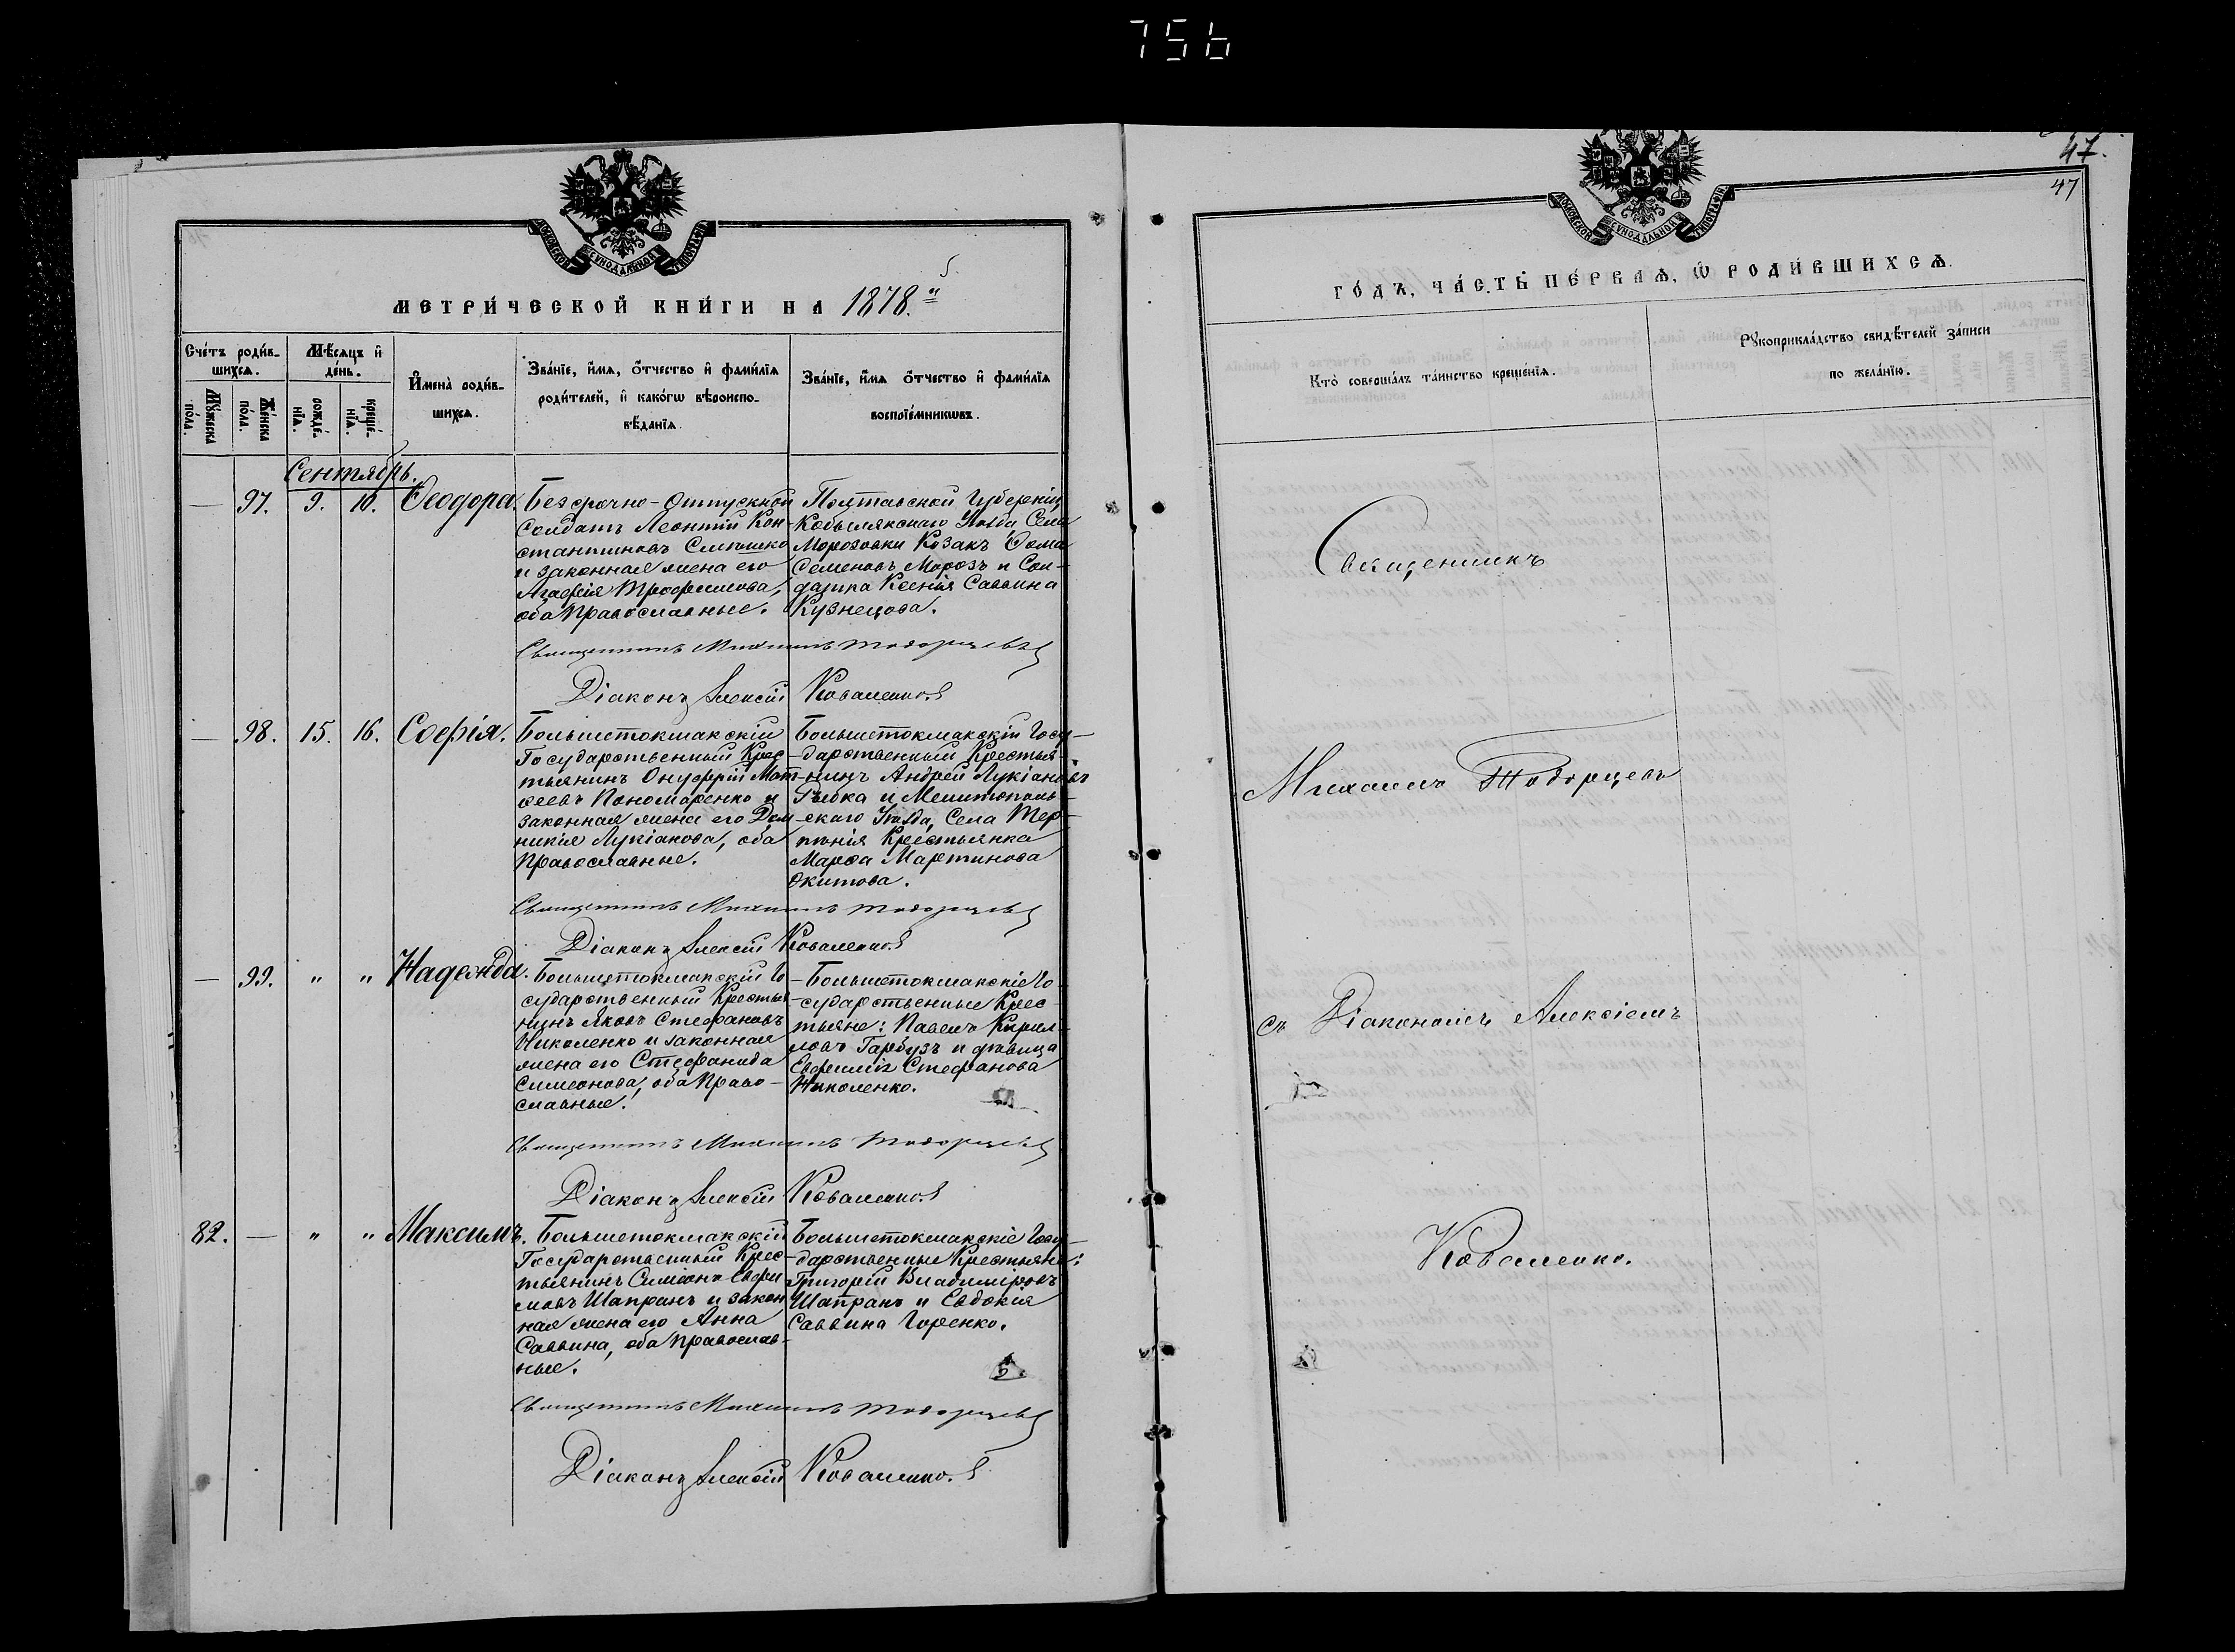 756
47.
47
МОСКОВСКОЙ СУНОДАЛЬНОЙ ТИПОГРАФІИ
МЕТРИ́ЧЕСКОЙ КНИ́ГИ НА 1878.й
Сче́тъ роди́в-
шихсѧ.
Мꙋ́жеска
по́ла.
Же́нска
по́ла.
Мѣ́сѧцъ и
де́нь.
рожде́-
нїѧ.
креще́-
нїѧ.
И҆мена̀ роди́в-
шихсѧ.
Зва́нїе, и҆́мѧ, ѻ҆́тчество и҆ фами́лїѧ
роди́телей, и҆ како́гѡ вѣроиспо-
вѣ́данїѧ.
Зва́нїе, и҆́мѧ ѻ҆́тчество и҆ фами́лїѧ
воспрїе́мникѡвъ.
Сентябрь.
— 97. 9. 10. Ѳеодора.
Безсрочно-Отпускной
Солдатъ Леонтій Кон-
стантиновъ
и законная жена его
Агафія Трофимова,
оба Православные.
Полтавской Губерніи,
Кобелякскаго Уѣзда Села
Морозовки Козакъ Ѳома
Семеновъ Морозъ и Сол-
датка Ксенія Саввина
Кузнецова.
Священникъ Михаилъ Тодорцевъ
Діаконъ Алексій Коваленко.
— 98. 15. 16. Софія.
Большетокмакскій
Государственный Крес-
тьянинъ Онуфрій Мат-
ѳеевъ Пономаренко и
законная жена его Дом-
никія Лукіанова, оба
Православные.
Большетокмакскій Госу-
дарственный Крестья-
нинъ Андрей Лукіановъ
и Мелитополь-
скаго Уѣзда, Села Тер-
пѣнія Крестьянка
Марѳа Мартинова
Окитова.
Священникъ Михаилъ Тодорцевъ
Діаконъ Алексій Коваленко.
— 99. " " Надежда.
Большетокмакскій Го-
сударственный Крестья-
нинъ Яковъ Стефановъ
Николенко и законная
жена его Стефанида
Симеонова, оба Право-
славные.
Большетокмакскіе Го-
сударственные Крес-
тьяне: Павелъ Кирил-
ловъ Гарбузъ и дѣвица
Евфимія Стефанова
Николенко.
Священникъ Михаилъ Тодорцевъ
Діаконъ Алексій Коваленко.
82. — " " Максимъ.
Большетокмакскій
Государственный Крес-
тьянинъ Симеонъ Евфи-
мовъ Шапранъ и закон-
ная жена его Анна
Саввина, оба Православ-
ные.
Большетокмакскіе Госу-
дарственные Крестьяне:
Григорій Владиміровъ
Шапранъ и Евдокія
Саввина Горенко.
Священникъ Михаилъ Тодорцевъ
Діаконъ Алексій Коваленко.
МОСКОВСКОЙ СУНОДАЛЬНОЙ ТИПОГРАФІИ
ГО́ДЪ, ЧА́СТЬ ПЕ́РВАѦ, Ѡ҆ РОДИ́ВШИХСѦ.
Кто̀ соверша́лъ та́инство креще́нїѧ.
Рꙋкоприкла́дство свидѣ́телей за́писи
по жела́нїю.
Священникъ
Михаилъ Тодорцевъ
съ Діакономъ Алексіемъ
Коваленко.